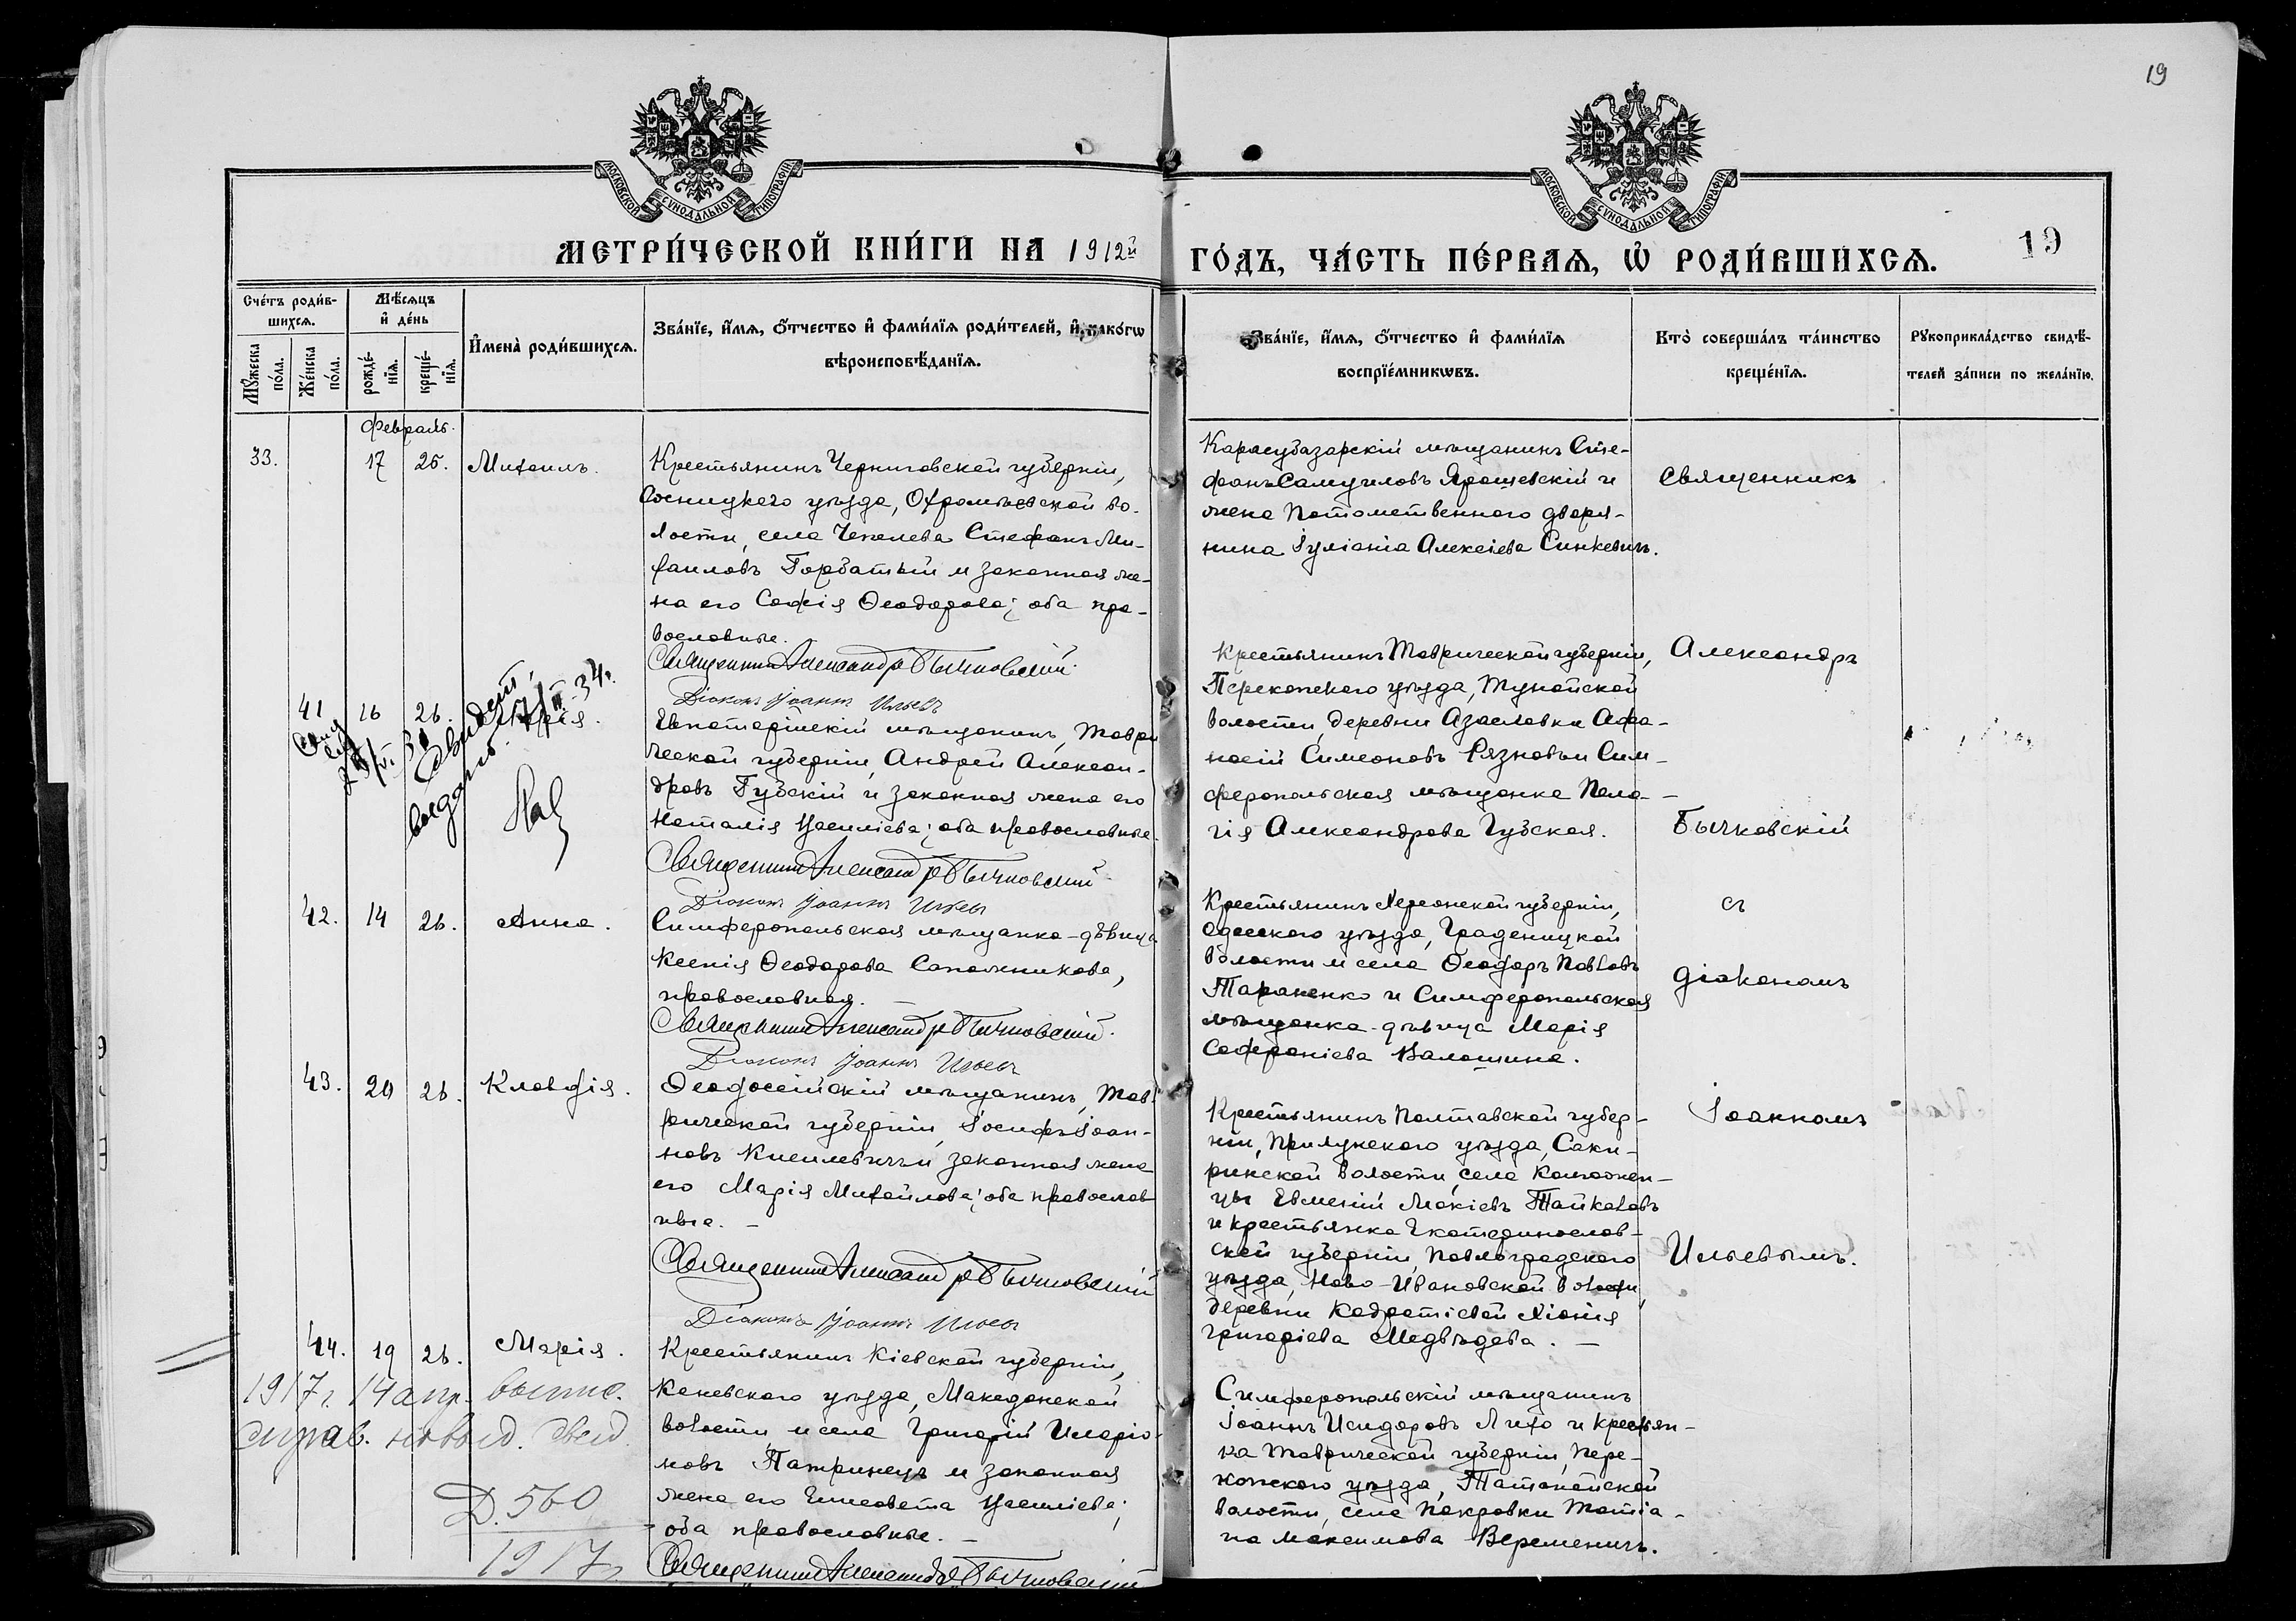 19
МОСКОВСКОЙ СѴНОДАЛЬНОЙ ТИПОГРАФІИ
МОСКОВСКОЙ СѴНОДАЛЬНОЙ ТИПОГРАФІИ
МЕТРИ́ЧЕСКОЙ КНИ́ГИ НА 1912й
ГО́ДЪ, ЧА́СТЬ ПЕ́РВАЯ, Ѡ҆ РОДИ́ВШИХСЯ.
19
Сче́тъ роди́в-
шихся.
Мѣ́сяцъ
и҆ де́нь
Му́жеска
по́ла.
Же́нска
по́ла.
рожде́-
нїя.
креще́-
нїя.
И҆мена̀ роди́вшихся.
Зва́нїе, и҆́мя, ѻ҆́тчество и҆ фами́лїя роди́телей, и҆ како́гѡ
вѣроисповѣ́данїя.
Зва́нїе, и҆́мя, ѻ҆́тчество и҆ фами́лїя
воспрїе́мникѡвъ.
Кто̀ соверша́лъ та́инство
креще́нїя.
Рукоприкла́дство свидѣ́-
телей за́писи по жела́нїю.
Февраль.
33.
17
25.
Михаилъ.
Крестьянинъ Черниговской губерніи,
Сосницкаго уѣзда, Охрамѣевской во-
лости, села Чепелева Стефанъ Ми-
хаиловъ Горбатый и законная же-
на его Софія Ѳеодорова; оба пра-
вославные.
Священникъ Александръ Бычковскій
Діаконъ Іоаннъ Ильевъ
Карасубазарскій мѣщанинъ Сте-
фанъ Самуиловъ Ярошевскій и
жена потомственного дворя-
нина Іуліанія Алексіева Синкевичъ.
Священникъ
Александръ
Бычковскій
съ
діакономъ
Іоанномъ
Ильевымъ.
41
16
26.
Марія.
свидет.
выдано.
34г.
Евпаторійскій мѣщанинъ, Таври
ческой губерніи, Андрей Алексан-
дровъ Губскій и законная жена его
Наталія Василіева; оба православные.
Священникъ Александръ Бычковскій
Діаконъ Іоаннъ Ильевъ
Крестьянинъ Таврической губерніи,
Перекопского уѣзда,
волости, деревни Афа-
насій Симеоновъ Рязновъ и Сим-
феропольская мѣщанка Пела-
гія Александрова Губская.
42.
14
26.
Анна.
Симферопольская мѣщанка-дѣвица
Ксенія Ѳеодорова Сапожникова,
православная. —
Священникъ Александръ Бычковскій
Діаконъ Іоаннъ Ильевъ
Крестьянинъ Херсонской губерніи,
Одесского уѣзда, Граденицкой
волости и села Ѳеодоръ Павловъ
Тараненко и Симферопольская
мѣщанка-дѣвица Марія
Софроніева Валошина.
43.
20
26.
Клавдія.
Ѳеодосійскій мѣщанинъ, Тав-
рической губерніи, Іосифъ Іоан-
новъ и законная жена
его Марія Михаилова; оба православ
ные. —
Священникъ Александръ Бычковскій
Діаконъ Іоаннъ Ильевъ
Крестьянинъ Полтавской губер-
ніи, Прилукского уѣзда,
волости, села
цы Евменій
и крестьянка Екатеринослав-
ской губерніи, Павлоградского
уѣзда, Ново-Ивановской волости,
деревни Хіонія
Григоріева Медвѣдева. —
44.
19
26.
Марія.
1917г. 14 апр. выпис.
Д. 560
1917г
Крестьянинъ Кіевской губерніи,
Каневского уѣзда, Македонской
волости и села Григорій Иларіо-
новъ и законная
жена его Елисавета Василіева;
оба православные. —
Священникъ Александръ Бычковскій
Симферопольскій мѣщанинъ
Іоаннъ Исидоровъ Лихо и крестьян-
ка Таврической губерніи, Пере-
копского уѣзда,
волости, села Покровки Татіа-
на Максимова Веременичъ.